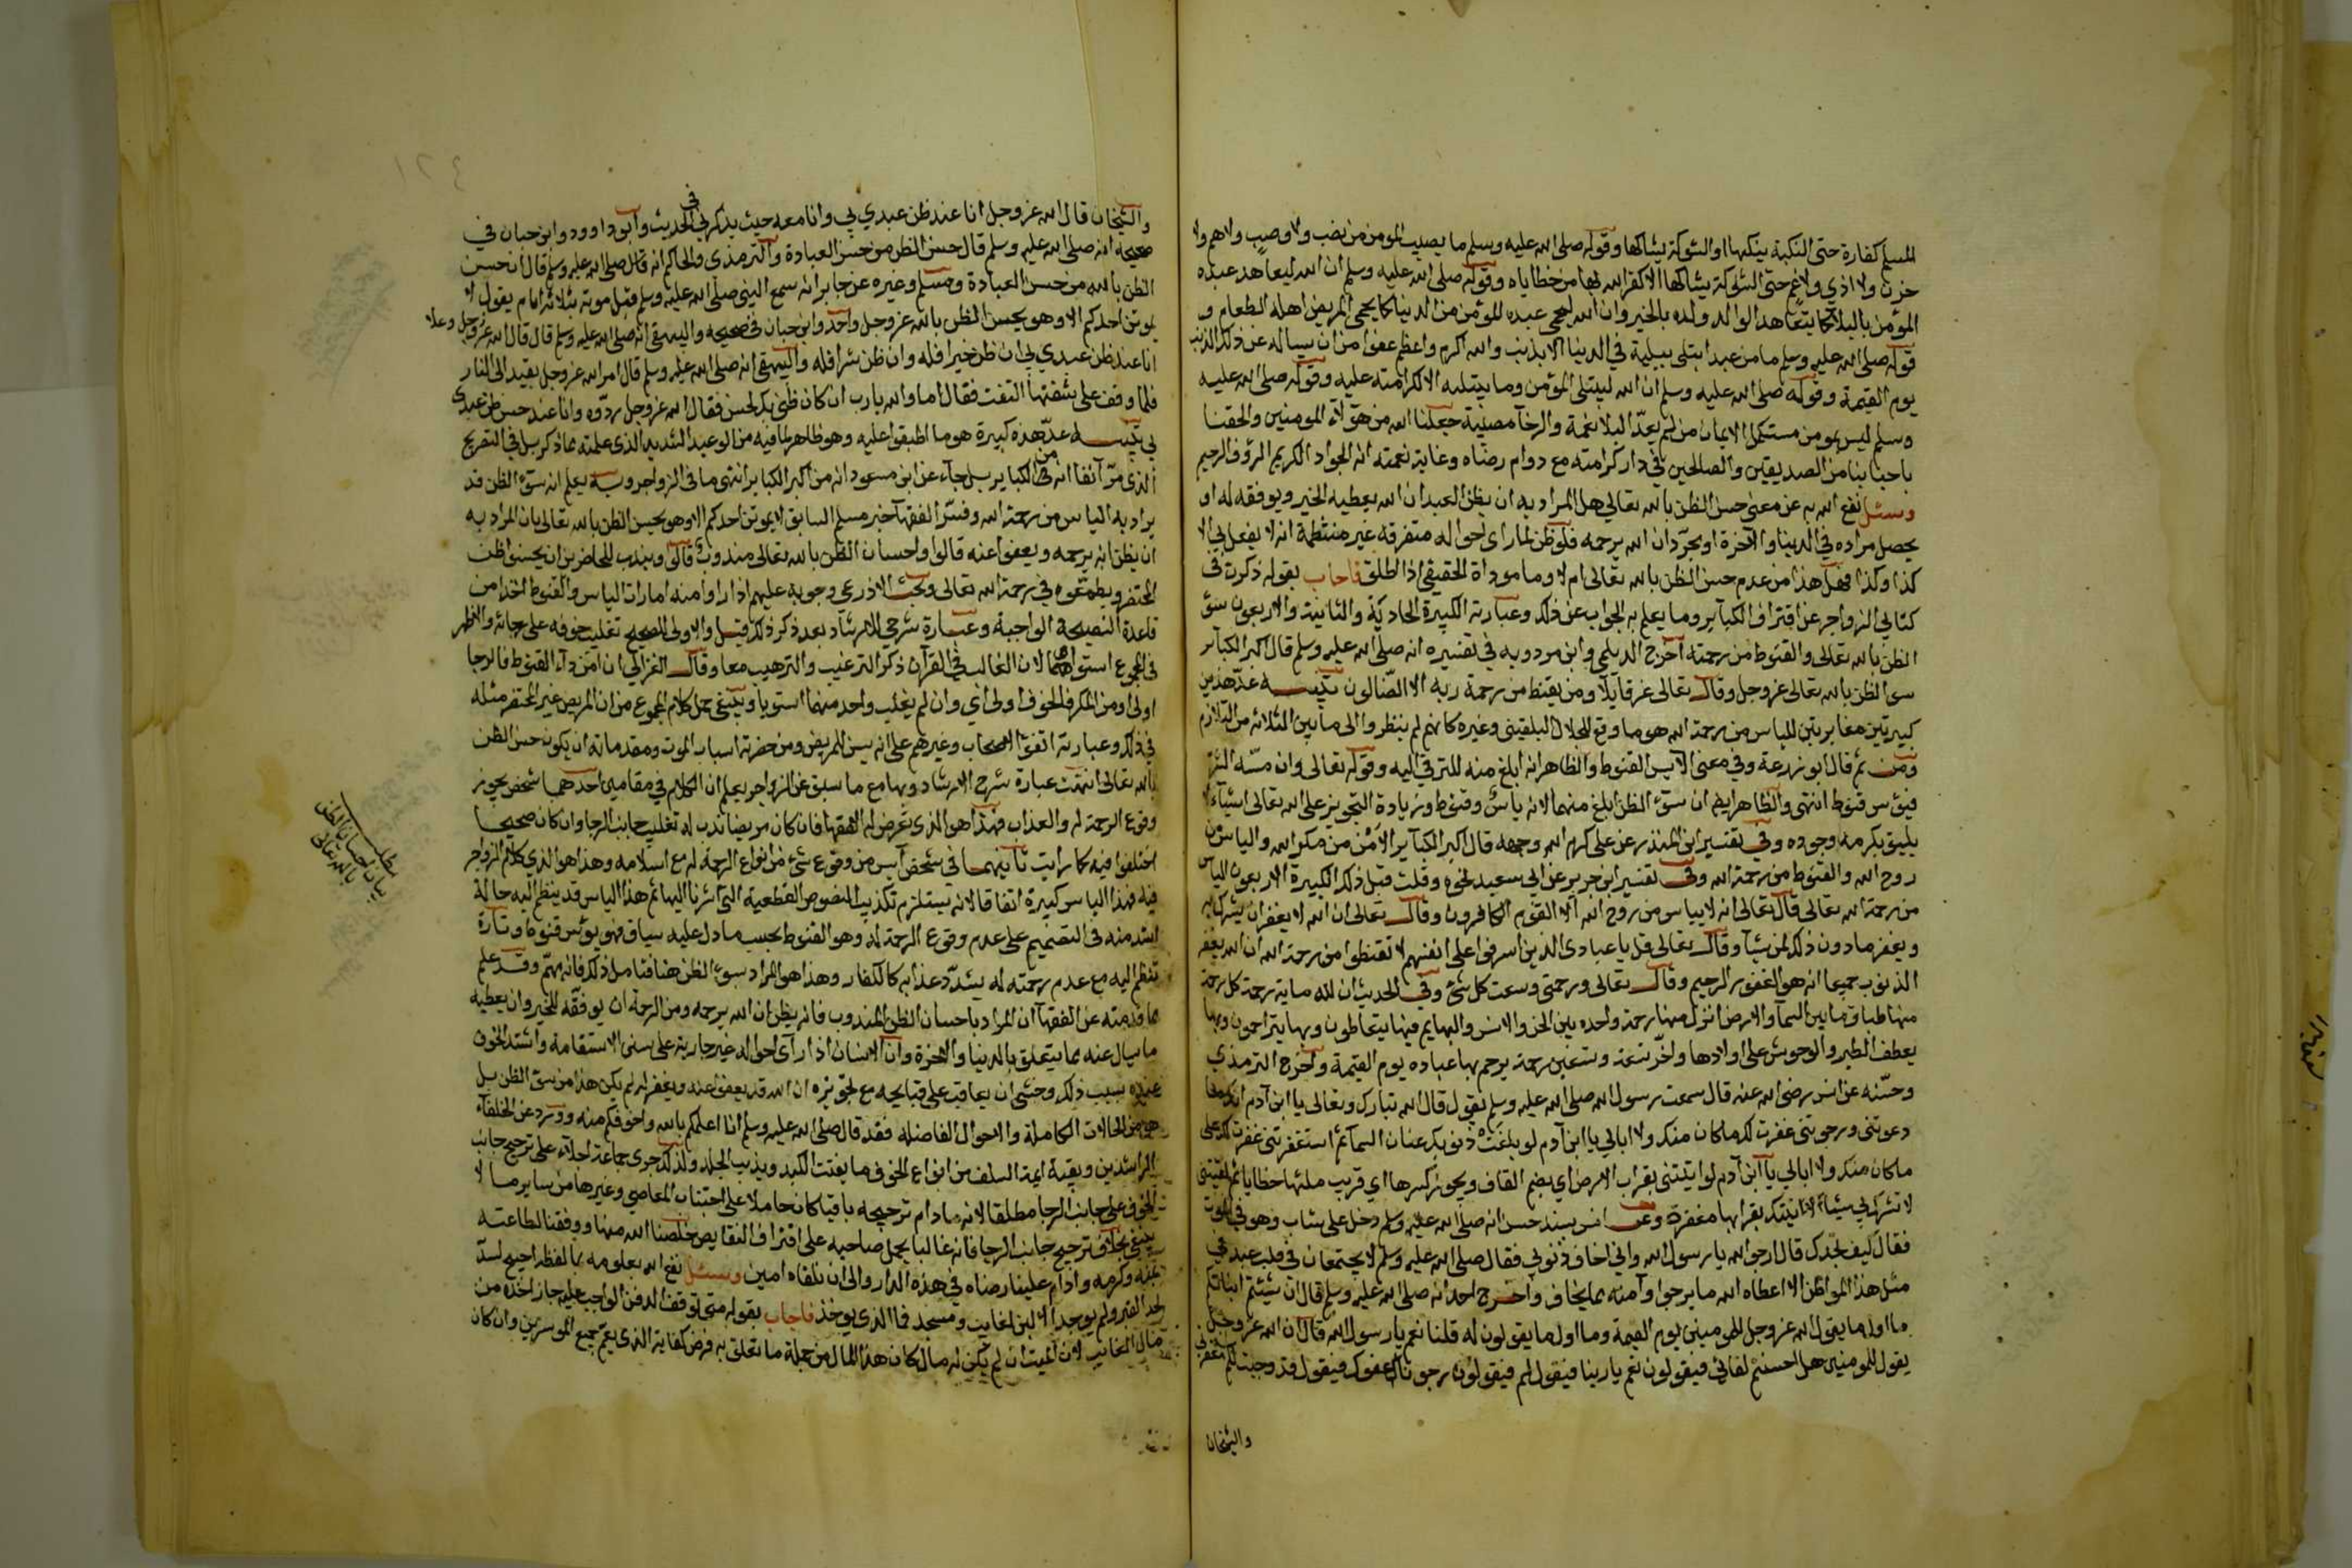 المسلم كفارة حتى النكبة ينكبها او الشوكة يشاكها وقوله صلى الله عليه وسلم ما يصيب المومن من نصب ولا وصب ولا هم ولا
حزن ولا اذي ولا غم حتى الشوكة يشاكها الا كفر الله بها من خطاياه وقوله صلى الله عليه وسلم ان الله ليعاهد عبده
المؤمن بالبلا كما يتعاهد الوالد ولده بالخير وان الله ليحمي عبده المؤمن من الدنيا كما يحمي المريض اهله الطعام و
قوله صلى الله عليه وسلم ما من عبد ابتلى ببلية في الدنيا الا بذنب والله اكرم واعظم عفوا من ان يساله عن ذلك الذنب
يوم القيمة وقوله صلى الله عليه وسلم ان الله ليبتلى المؤمن وما يبتليه الا لكرامته عليه وقوله صلى الله عليه
وسلم ليس بمومن مستكمل الايمان من لم يعد البلا نعمة والرخا مصيبة جعلنا الله من هؤلاء المومنين والحقنا
باحبابنا من الصديقين والصالحين في دار كرامته مع دوام رضاه وغاية نعمته انه الجواد الكريم الرؤف الرحيم
وسئل نفع الله به عن معنى حسن الظن بالله تعالى هل المراد به ان يظن العبد ان الله يعطيه الخير ويوفقه له او
يحصل مراده في الدينا والآخرة او بجرد ان الله يرحمه فلو ظن لما راى احواله متفرقة غير منتظمة انه لا يفعل بي الا
كذا وكذا فهل هذا من عدم حسن الظن بالله تعالى ام لا وما موداه الحقيقي اذا اطلق فاجاب بقوله ذكرت في
كتابي الزواجر عن اقتراف الكباير وما يعلم به الجواب عن ذلك وعبارته الكبيرة الحادية والثانية والاربعون سؤ
الظن بالله تعالى والقنوط من رحمته اخرج الديلمي وابن مردويه في تفسيره انه صلى الله عليه وسلم قال اكبر الكبائر
سو الظن بالله تعالى عز وجل وقال تعالى عز قايلا ومن يقنط من رحمة ربه الا الضالون تنبيه عد هذين
كبيرتين مغايرتين للياس من رحمة الله هو ما وقع للجلال البلقيني وغيره كانهم لم ينظروا الى ما بين الثلاثه من التلازم
ومن ثم قال ابو زرعة وفي معنى الايس القنوط والظاهر انه ابلغ منه للترقي اليه وقوله تعالى وان مسه الشر
فيؤس قنوط انتهى والظاهر ايض ان سؤ الظن ابلغ منهما لانه ياس وقنوط وزيادة التجويز على الله تعالى اشياء لا
يليق بكرمه وجوده وفي تفسير ابن المنذر عن علي كرم الله وجهه قال اكبر الكباير الأمن من مكر الله والياس من
روح الله والقنوط من رحمة الله وفي تفسير ابن جرير عن ابي سعيد نحوه وقلت قبل ذلك الكبيرة الاربعون الياس
من رحمة الله تعالى قال تعالى انه لا يياس من روح الله الا القوم الكافرون وقال تعالى ان الله لا يغفر ان يشرك به
ويغفر ما دون ذلك لمن يشا وقال تعالى قل يا عبادي الذين اسرفوا على انفسهم لا تقنطوا من رحمة الله ان الله يغفر
الذنوب جميعا انه هو الغفور الرحيم وقال تعالى ورحمتي وسعت كل شئ وفي الحديث ان لله ماية رحمة كل رحمة
منها طباق ما بين السما والارض انزل منها رحمة واحده بين الجن والانس والبهايم فبها يتعاطفون وبها يتراحمون وبها
يعطف الطير والوحوش على اولادها واخر تسعة وتسعين رحمة يرحم بها عباده يوم القيمة واخرج الترمذي
وحسنه عن انس رضى الله عنه قال سمعت رسول الله صلى الله عليه وسلم يقول قال الله تبارك وتعالى يا ابن آدم انك ما
دعوتني ورجوتني غفرت لك ما كان منك ولا ابالي يا ابن آدم لو بلغت ذنوبك عنان السما ثم استغفرتني غفرت لك على
ما كان منك ولا ابالي يا ابن آدم لو اتيتني بقراب الارض اي بضم القاف ويجوز كسرها اي قريب ملئها خطايا ثم لقيتني
لا تشرك بي شيئا لاتيتك بقرابها مغفرة وعن انس بسند حسن انه صلى الله عليه وسلم دخل على شاب وهو في الموت
فقال كيف نجدك قال ارجو الله يا رسول الله واني اخاف ذنوبي فقال صلى الله عليه وسلم لا يجتمعان في قلب عبد في
مثل هذا المواطن الا اعطاه الله ما يرجوا وآمنه مما يخاف واخرج احد انه صلى الله عليه وسلم قال ان شيئتم انباتكم
ما اول ما يقول الله عز وجل للمومينين يوم القيمة وما اول ما يقولون له قلنا نعم يا رسول الله قال ان الله عز وجل
يقول للمومنين هل احببتم لقائي فيقولون نعم يا ربنا فيقول لم فيقولون رجوناك عفوك فيقول قد وجبت لكم مغفرتي
والشيخان
١٢٤
والشيخان قال الله عز وجل انا عند ظن عبدي بي وانا معه حيث يذكرني الحديث وابو داوود وابن حبان في
صحيحه انه صلى الله عليه وسلم قال حسن الظن من حسن العبادة والترمذي والحاكم انه قال صلى الله عليه وسلم قال ان حسن
الظن بالله من حسن العبادة ومسلم وغيره عن جابر انه سمع النبي صلى الله عليه وسلم قبل موته بثلاثه ايام يقول لا
يموتن احدكم الا وهو يحسن الظن بالله عز وجل واحد وابن حبان في صحيحه والبيهقي انه صلى الله عليه وسلم قال قال الله عز وجل وعلا
انا عند ظن عبدي بي ان ظن خيرا فله وان ظن شرا فله والبيهقي انه صلى الله عليه وسلم قال امر الله عز وجل بعبد الى النار
فلما وقف على شفتها التفت فقال اما والله يا رب ان كان ظني بك لحسن فقال الله عز وجل ردوه وانا عند حسن ظن عبدي
بي تنبيه عد هذه كبيرة هو ما اطبقوا عليه وهو ظاهر لما فيه من الوعيد الشديد الذي علمته مما ذكر بل في التصريح
الذي مر آنفا انه من الكباير بل جاء عن ابن مسعود انه من اكبر الكباير انتهى ما في الزواجر وبه يعلم ان سؤ الظن قد
يراد به الياس من رحمة الله وفسر الفقها خبر مسلم السابق لا يموتن احدكم الا وهو يحسن الظن بالله تعالى بان المراد به
ان يظن انه يرحمه ويعفوا عنه قالوا واحسان الظن بالله تعالى مندوب قالوا ويندب للحاضرين ان يحسنوا ظن
المحتضر ويطمعوه في رحمة الله تعالى وبحث الاذرعي وجوبه عليهم اذا راوا منه امارات الياس والقنوط اخذا من
قاعدة النصيحة الواجبة وعبارة شرحي للارشاد بعد ذكر ذلك قيل والاولى للصحيح تغليب خوفه على رجائه والاظهر
في المجموع استواهما لان الغالب في القرآن ذكر الترغيب والترهيب معا وقال الغزالي ان امن داء القنوط فالرجا
اولى او من المكر فالخوف اولى اي وان لم يغلب واحد منهما استويا وينبغي حمل كلام المجموع من ان المريض غير المحتضر مثله
في ذلك وعبارته اتفق الاصحاب وغيرهم على انه يسن للمريض ومن حضرته اسباب الموت ومقدماته ان يكون حسن الظن
بالله تعالى انتهت عبارة شرح الارشاد وبها مع ما سبق عن الزواجر يعلم ان الكلام في مقامين احدهما شخص يجوز
وقوع الرحمة له والعذاب فهذا هو الذي تعرض له الفقها فان كان مريضا ندب له تغليب جانب الرجا وان كان صحيحا
اختلفوا فيه كما رايت ثانيهما في شخص آيس من وقوع شئ من انواع الرحمة له مع اسلامه وهذا هو الذي كلام الزواجر
فيه فهذا الياس كبيرة اتفاقا لانه يستلزم تكذيب النصوص القطعية التي اشرنا اليها ثم هذا الياس قد ينظم اليه حالة
اشد منه في التصميم على عدم وقوع الرحمة له وهو القنوط بحسب ما دل عليه سياق فهو يؤس قنوط وتارة
تنظم اليه مع عدم رحمته له يشدد عذابه كالكفار وهذا هو المراد بسؤ الظن هنا فتامل ذلك فانه مهم وقد علم
مما قدمته عن الفقها ان المراد باحسان الظن المندوب فانه يظن ان الله يرحمه ومن الرحمة ان يوفقه للخير وان يعطيه
ما يسال عنه مما يتعلق بالدينا والآخرة وان الانسان اذا رآى احواله غير جارية على سنن الاستقامة واشتد الخوف
عنده بسبب ذلك وخشي ان يعاقب على قبايحه مع تجويزه ان الله قد يعفو عنه ويغفر له لم يكن هذا من سؤ الظن بل
هو من الحالات الكاملة والاحوال الفاضله فقد قال صلى الله عليه وسلم انا اعلمكم بالله واخوفكم منه وورد عن الخلفاء
الراشدين وبقية ايمة السلف من انواع الخوف ما يفتت الكبد ويذيب الجلد ولذلك جرى جماعة اجلاء على ترجيح جانب
الخوف على جانب الرجا مطلقا لانه ما دام ترجيحه باقيا كان حاملا على اجتناب المعاصي وغيرها من ساير ما لا
ينبغي بخلاف ترجيح جانب الرجا فانه غالبا يحمل صاحبه على اقتراف النقايص خلصنا الله منها ووفقنا لطاعته
بمنه وكرمه وادام علينا رضاه في هذه الدار والى ان نلقاه امين وسئل نفع الله بعلومه بما لفظه احتيج لسد
لحد القبر ولم يوجد الا لبن لغايب ومسجد فما الذي يوخذ فاجاب بقوله متى توقف الدفن الواجب عليه جاز اخذه من
مال الغايب لان الميت ان لم يكن له مال كان هذا المال من جملة ما تعلق به فرض كفاية الذي يعم جميع الموسرين وان كان
مطلب
بيان احسان الظن
بالله تعالى